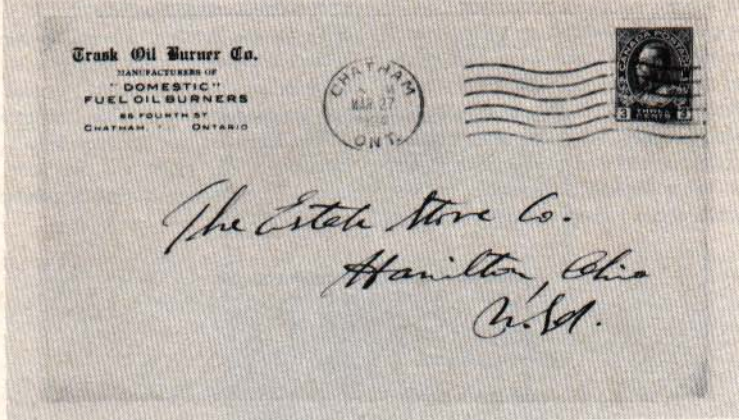 Trask Oil Burner Co.
MANUFACTURERS OF
"DOMESTIC"
FUEL OIL BURNERS
66 FOURTH ST
CHATHAM, ONTARIO
CHATHAM
MAR 27
ONT.
CANADA POSTAGE
3 THREE CENTS 3
The Estate Stove Co.
Hamilton, Ohio